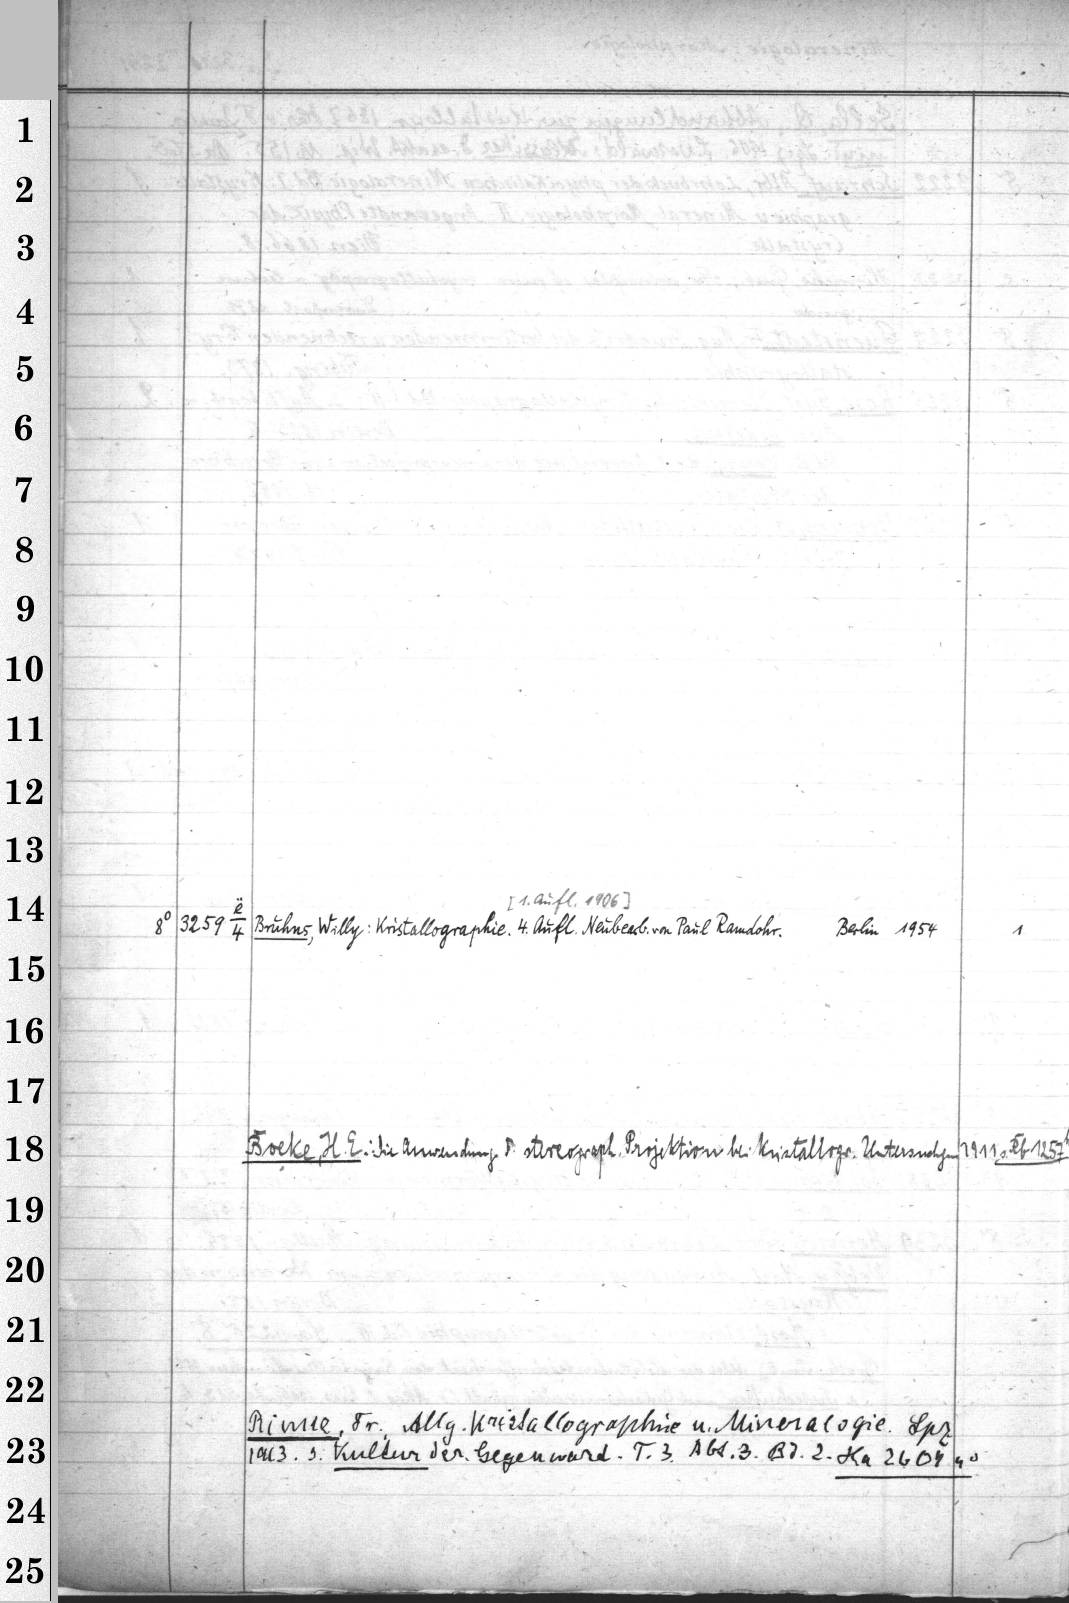 1
2
3
4
5
6
7
8
9
10
11
12
13
14
[1. Aufl. 1906]
8° 3259 ë/4 Bruhns, Willy: Kristallographie. 4. Aufl. Neubearb. von Paul Ramdohr. Berlin 1954 1
15
16
17
18
Boeke, H. E.: Die Anwendung d. stereograph. Projektion bei kristallogr. Untersuchgn 1911 s. 1257
19
20
21
22
Rinne, Fr., Allg. Kristallographie u. Mineralogie. Lpz
23
1913. s. Kultur der Gegenward. T. 3. Abt. 3. Bd. 2. Ha 2604
24
25